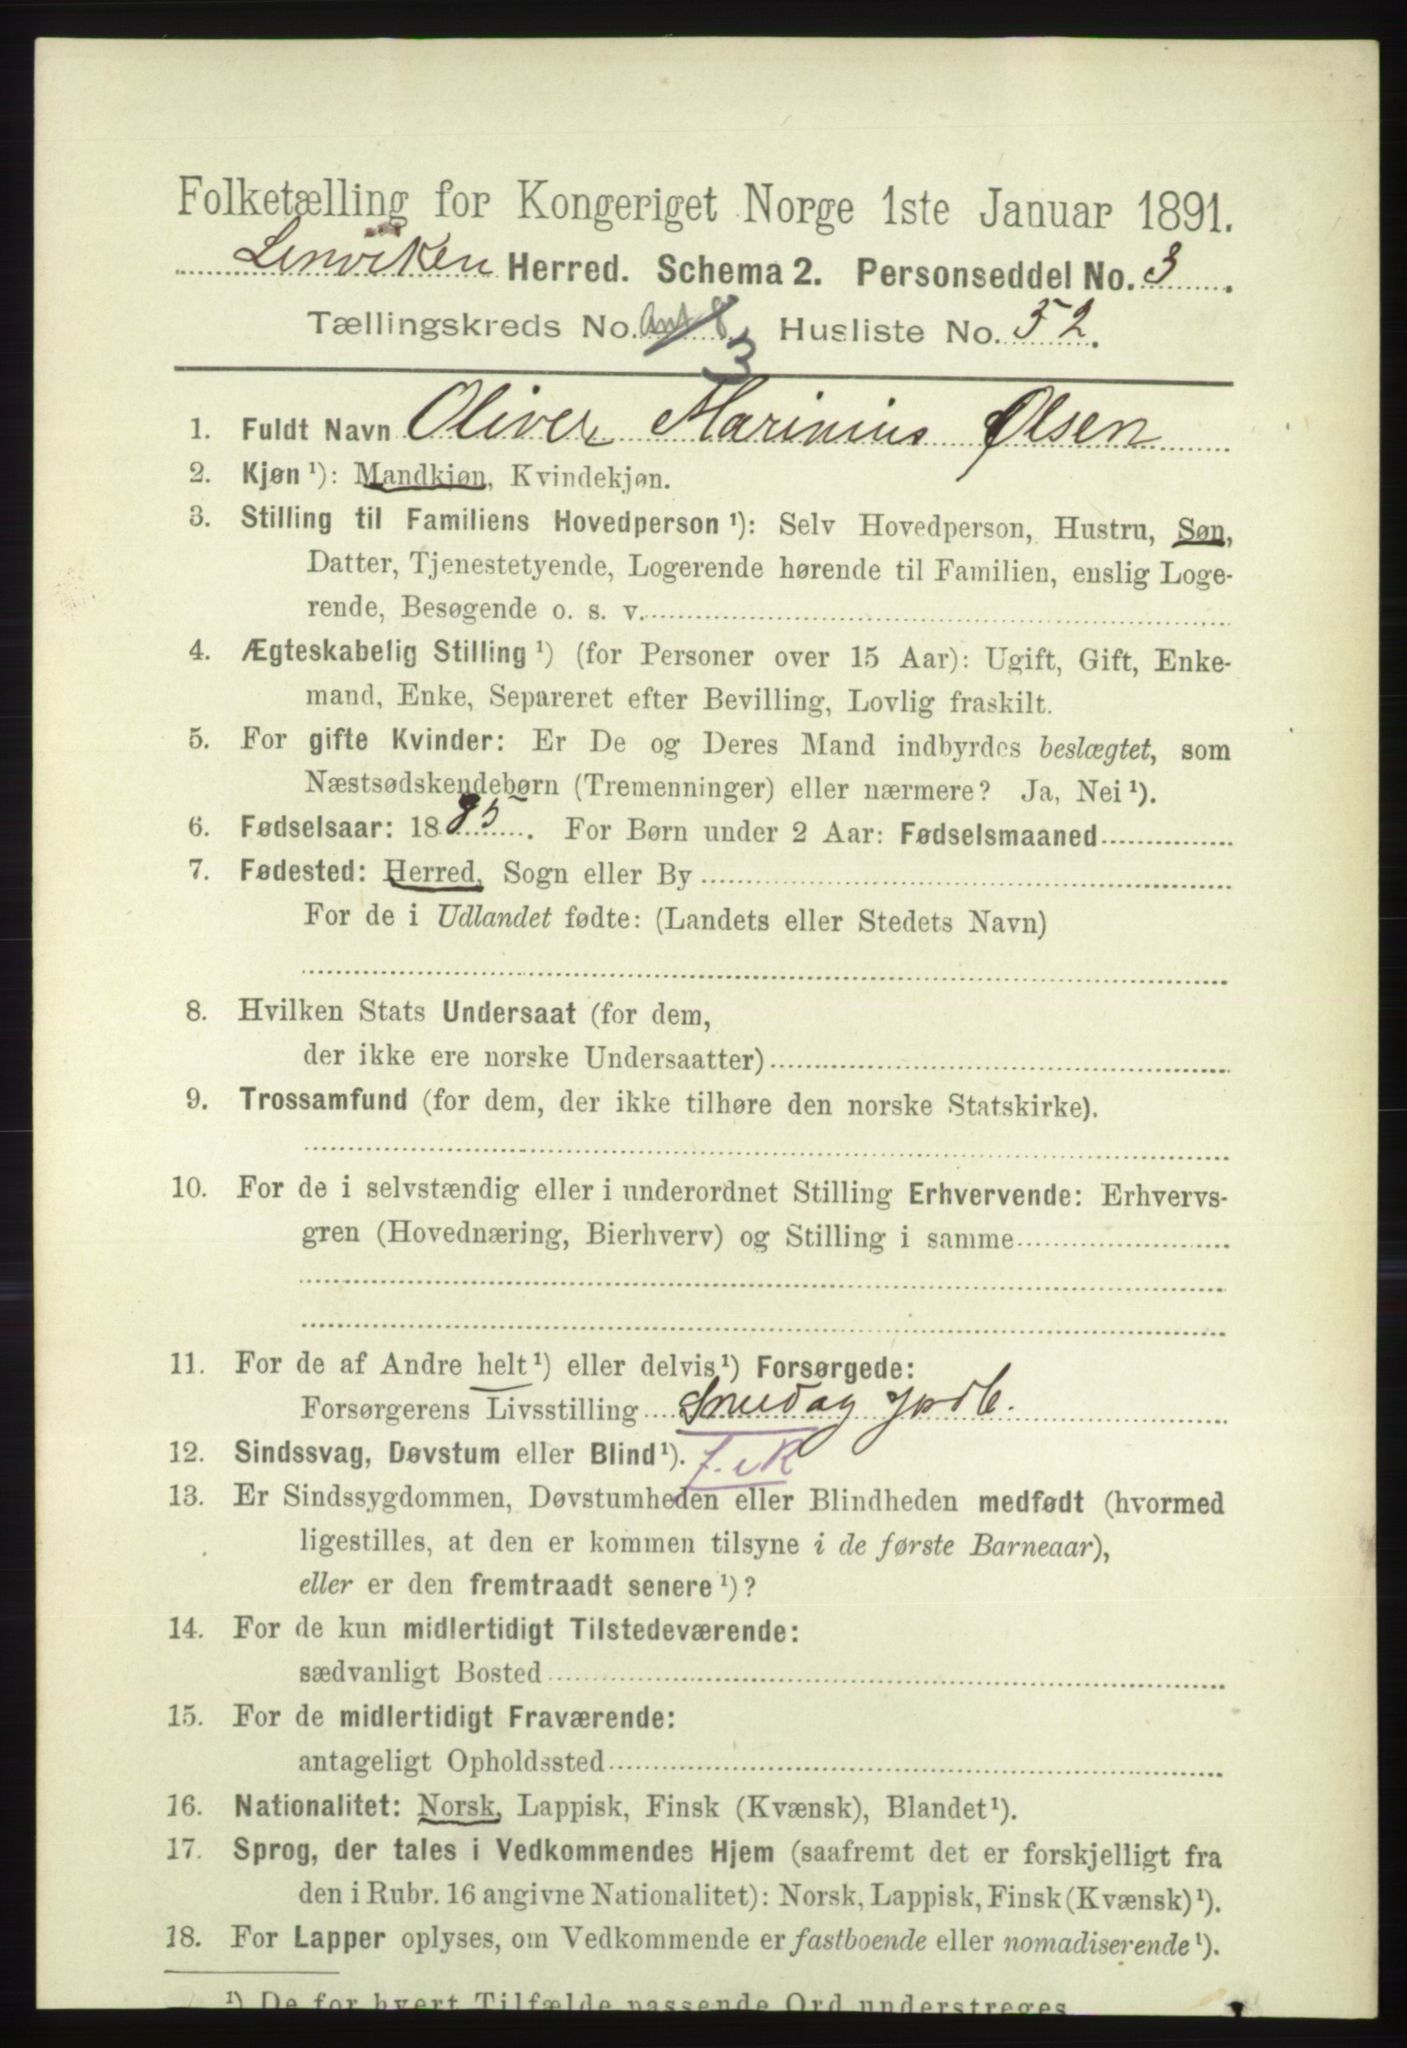 Folketælling for Kongeriget Norge 1ste Januar 1891.
Lenviken Herred. Schema 2. Personseddel No. 3.
Tællingskreds No. 3 Husliste No. 52.
1. Fuldt Navn Oliver Marinius Olsen
2. Kjøn ¹): Mandkjøn, Kvindekjøn.
3. Stilling til Familiens Hovedperson ¹): Selv Hovedperson, Hustru, Søn,
Datter, Tjenestetyende, Logerende hørende til Familien, enslig Loge-
rende, Besøgende o. s. v.
4. Ægteskabelig Stilling ¹) (for Personer over 15 Aar): Ugift, Gift, Enke-
mand, Enke, Separeret efter Bevilling, Lovlig fraskilt.
5. For gifte Kvinder: Er De og Deres Mand indbyrdes beslægtet, som
Næstsødskendebørn (Tremenninger) eller nærmere? Ja, Nei ¹).
6. Fødselsaar: 1885. For Børn under 2 Aar: Fødselsmaaned
7. Fødested: Herred, Sogn eller By
For de i Udlandet fødte: (Landets eller Stedets Navn)
8. Hvilken Stats Undersaat (for dem,
der ikke ere norske Undersaatter)
9. Trossamfund (for dem, der ikke tilhøre den norske Statskirke).
10. For de i selvstændig eller i underordnet Stilling Erhvervende: Erhvervs-
gren (Hovednæring, Bierhverv) og Stilling i samme
11. For de af Andre helt ¹) eller delvis ¹) Forsørgede:
Forsørgerens Livsstilling Smed og Jordb.
12. Sindssvag, Døvstum eller Blind ¹).
13. Er Sindssygdommen, Døvstumheden eller Blindheden medfødt (hvormed
ligestilles, at den er kommen tilsyne i de første Barneaar),
eller er den fremtraadt senere ¹)?
14. For de kun midlertidigt Tilstedeværende:
sædvanligt Bosted
15. For de midlertidigt Fraværende:
antageligt Opholdssted
16. Nationalitet: Norsk, Lappisk, Finsk (Kvænsk), Blandet ¹).
17. Sprog, der tales i Vedkommendes Hjem (saafremt det er forskjelligt fra
den i Rubr. 16 angivne Nationalitet): Norsk, Lappisk, Finsk (Kvænsk) ¹).
18. For Lapper oplyses, om Vedkommende er fastboende eller nomadiserende ¹).
¹) De for hvert Tilfælde passende Ord understreges